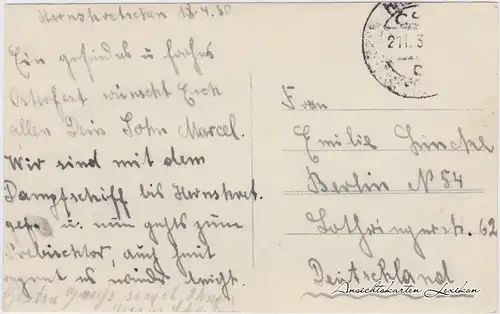 Hernskretschen 18.4.30
Ein gesundes u frohes
Osterfest wünscht Euch
allen Dein Sohn Marcel.
Wir sind mit dem
Dampfschiff bis Hernskret.
gef. u. nun gehts zum
Prebischtor, auch heut
regnet es wieder leicht.
Gruß
Frau
Emilie
Berlin N 54
Lothringerstr. 62
Deutschland
Ansichtskarten Lexikon